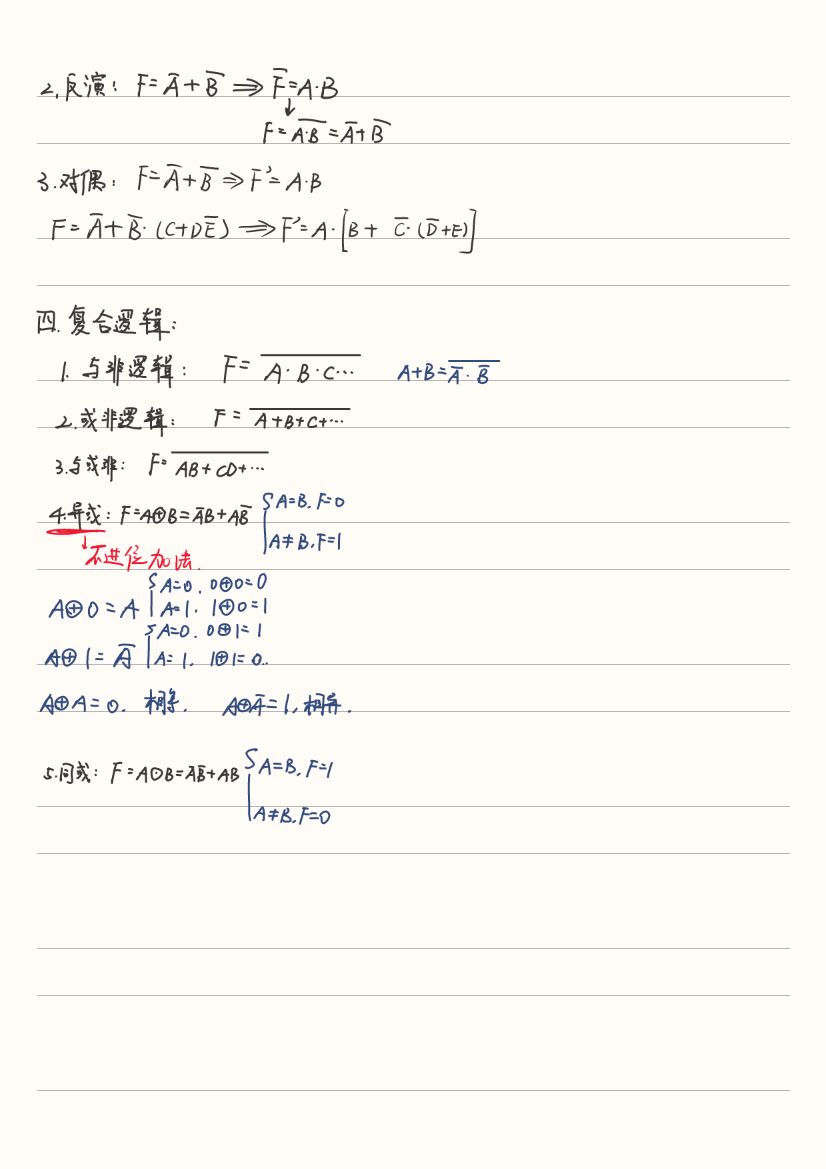 2.反演: F=A̅+B̅ ⇒ F̅=A·B
↓
F=A̅·̅B̅=A̅+B̅
3.对偶: F=A̅+B̅ ⇒ F'=A·B
F=A̅+B̅·(C+DE̅) ⇒ F'=A·[B+ C̅·(D̅+E)]
四.复合逻辑:
1. 与非逻辑: F= A̅ ̅·̅ ̅B̅ ̅·̅ ̅C̅·̅·̅·̅ A+B=A̅̅ ̅·̅ ̅B̅̅
2.或非逻辑: F= A̅+̅B̅+̅C̅+̅·̅·̅·̅
3.与或非: F= A̅B̅+̅C̅D̅+̅·̅·̅·̅
4.异或: F=A⊕B=A̅B+AB̅ { A=B, F=0
A≠B, F=1
↓不进位加法.
A⊕0=A { A=0, 0⊕0=0
A=1, 1⊕0=1
A⊕1=A̅ { A=0, 0⊕1=1
A=1, 1⊕1=0.
A⊕A=0. 相等. A⊕A̅=1,相异.
5.同或: F=A⊙B=A̅B̅+AB { A=B, F=1
A≠B, F=0